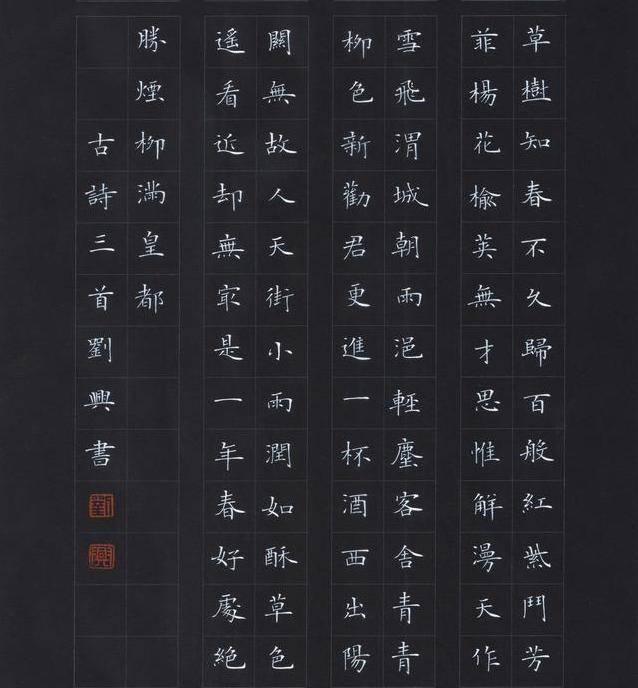 草樹知春不久歸百般紅紫鬥芳
菲楊花榆莢無才思惟解漫天作
雪飛渭城朝雨浥輕塵客舍青青
柳色新勸君更進一杯酒西出陽
關無故人天街小雨潤如酥草色
遙看近却無冣是一年春好處絕
勝煙柳滿皇都
古詩三首劉興書
劉
興